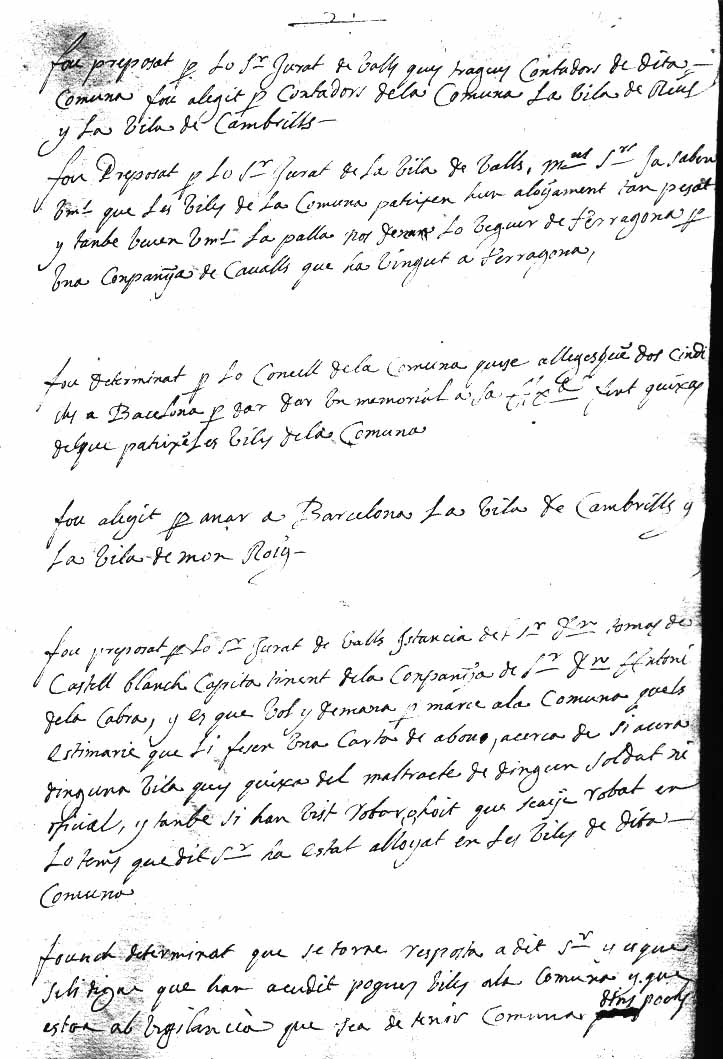 2
fou preposat p Lo Sr Jurat de Valls quys traguis Contadors de dita
Comuna fou alegit p Contadors dela Comuna La Vila de Reus
y La Vila de Cambrills
fou Preposat p Lo Sr Jurat de La Vila de Valls, Srs Ja saben
Vms que Les Viles de La Comuna patixen hun alojament tan pesat
y tanbe veuen Vms La palla nos Lo Veguer de Terragona p
Vna Conpanya de Cavalls que ha Vingut a Terragona,
fou determinat p Lo Concell dela Comuna quese dos cindi
chs a Bacelona p dar dar Vn memorial a Sa fent queixas
delque patixe Les Viles dela Comuna
fou alegit p anar a Barcelona La Vila de Cambrills y
La Vila de mon Roig
fou preposat p Lo Sr Jurat de Valls Istancia del Sr tomas de
Castell blanch Capita tinent dela Conpanya de Sr Antoni
dela Cabra, y es que Vol y demana p merce ala Comuna quels
estimarie que Li fesen Vna Carta de abono, acerca de Si acura
dinguna Vila quys queixa del maltracte de dingun Soldat ni
oficial, y tanbe Si han Vist robar, hoit que robat en
Lo tems que dit Sr ha estat allojat en Les Viles de dita
Comuna
founch determinat que se torne resposta a dit Sr y es que
Seli digue que han acudit pogues Viles ala Comuna y que
estan ab Vigilancia que sea de tenir Comuna dins pochs